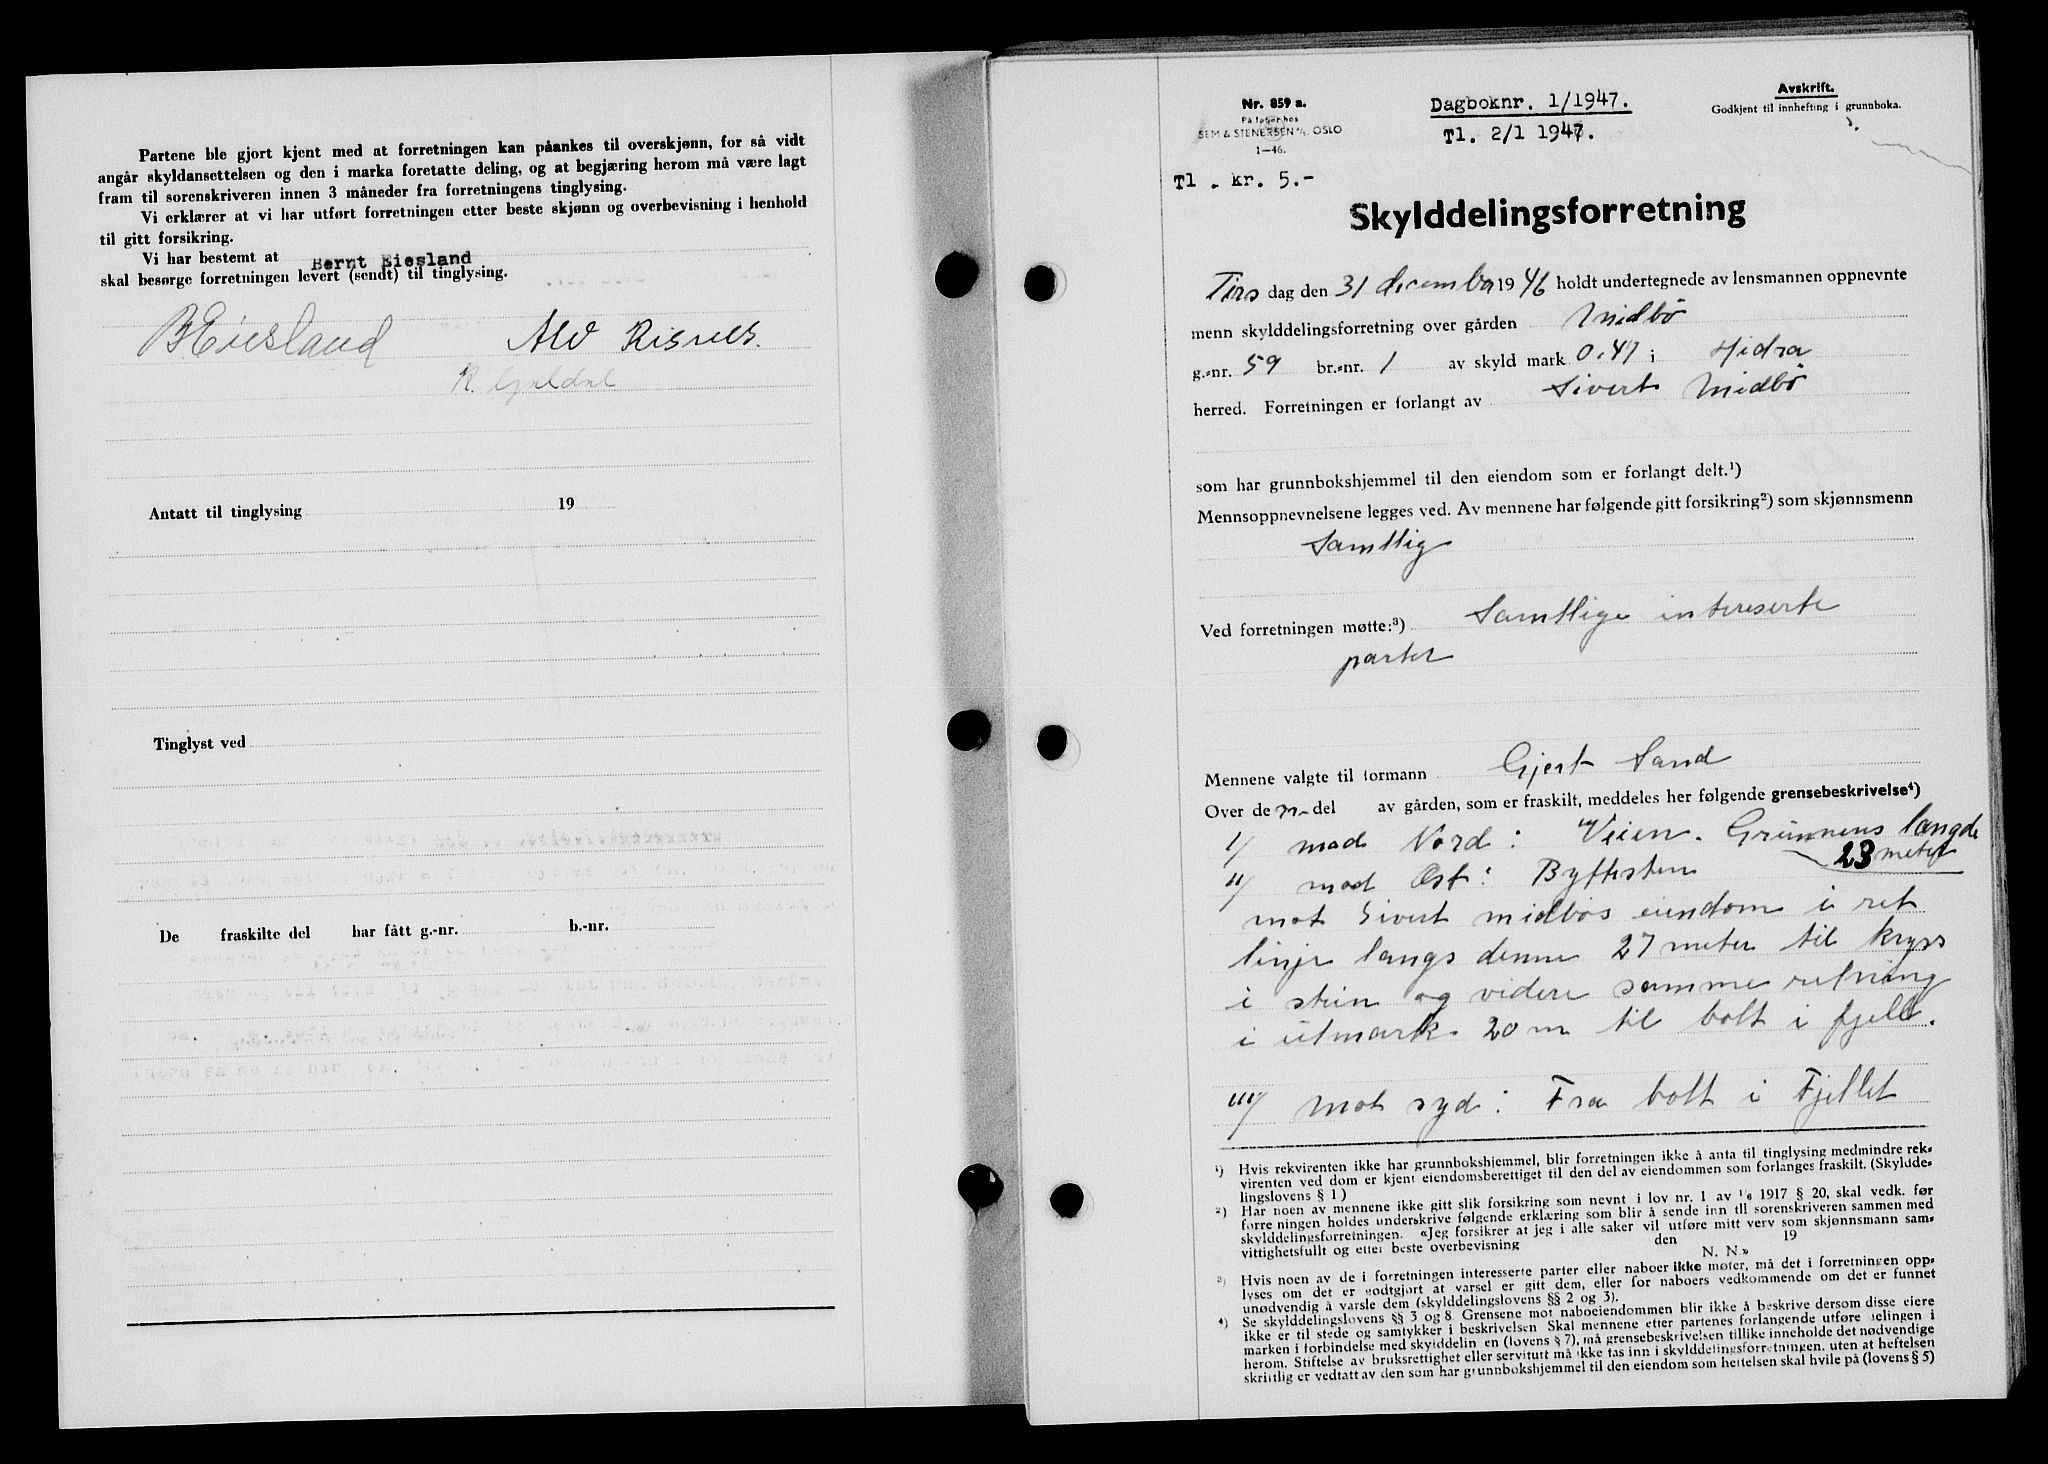 Partene ble gjort kjent med at forretningen kan påankes til overskjønn, for så vidt
angår skyldansettelsen og den i marka foretatte deling, og at begjæring herom må være lagt
fram til sorenskriveren innen 3 måneder fra forretningens tinglysing.
Vi erklærer at vi har utført forretningen etter beste skjønn og overbevisning i henhold
til gitt forsikring.
Vi har bestemt at Bernt Eiesland
skal besørge forretningen levert (sendt) til tinglysing.
B Eiesland Alv Risnes.
Antatt til tinglysing 19
Tinglyst ved
De fraskilte del har fått g.-nr. b.-nr.
Nr. 859 a.
På lager hos
SEM & STENERSEN A/S, OSLO
1—46.
Dagboknr. 1/1947.
Tl. 2/1 1947.
Avskrift.
Godkjent til innhefting i grunnboka.
Tl . kr. 5.-
Skylddelingsforretning
Tirs dag den 31 december 1946 holdt undertegnede av lensmannen oppnevnte
menn skylddelingsforretning over gården Midbö
g.-nr. 59 br.-nr. 1 av skyld mark 0.47 i Hidra
herred. Forretningen er forlangt av Sivert Midbö
som har grunnbokshjemmel til den eiendom som er forlangt delt.¹)
Mennsoppnevnelsene legges ved. Av mennene har følgende gitt forsikring²) som skjønnsmenn
Samtlig
Ved forretningen møtte:³) Samtlige intereserte
parter
Mennene valgte til formann Gjert Sand
Over de n del av gården, som er fraskilt, meddeles her følgende grensebeskrivelse⁴)
I/ mod Nord: Veien. Grunnens længde
23 meter
II/ mod Øst: Byttesten
mot Sivert midbös eiendom i ret
linje langs denne 27 meter til kryss
i stein og videre samme retning
i utmark 20 m til bolt i fjell.
III/ mot syd: Fra bolt i Fjellet
¹) Hvis rekvirenten ikke har grunnbokshjemmel, blir forretningen ikke å anta til tinglysing medmindre rek-
virenten ved dom er kjent eiendomsberettiget til den del av eiendommen som forlanges fraskilt. (Skyldde-
lingslovens § 1)
²) Har noen av mennene ikke gitt slik forsikring som nevnt i lov nr. 1 av 1/6 1917 § 20, skal vedk. før
forre ningen holdes underskrive følgende erklæring som blir å sende inn til sorenskriveren sammen med
skylddelingsforretningen. «Jeg forsikrer at jeg i alle saker vil utføre mitt verv som skjønnsmann sam-
vittighetsfullt og etter beste overbevisning den 19
N. N.»
³) Hvis noen av de i forretningen interesserte parter eller naboer ikke møter, må det i forretningen opp-
lyses om det er godtgjort at varsel er gitt dem, eller for naboers vedkommende om det er funnet
unødvendig å varsle dem (skylddelingslovens §§ 2 og 3).
⁴) Se skylddelingslovens §§ 3 og 8. Grensene mot naboeiendommen blir ikke å beskrive dersom disse eiere
ikke er til stede og samtykker i beskrivelsen Skal mennene etter partenes forlangende utføre delingen i
marken i forbindelse med skylddelin en (lovens § 7), må grensebeskrivelsen tillike inneholde det nødvendige
herom. Stiftelse av bruksrettighet eller servitutt må ikke tas inn i skylddelingsforretningen, uten at heftelsen
skriftlig er vedtatt av den som har grunnbokshjemmel til den eiendom som heftelsen skal hvile på (lovens § 5)